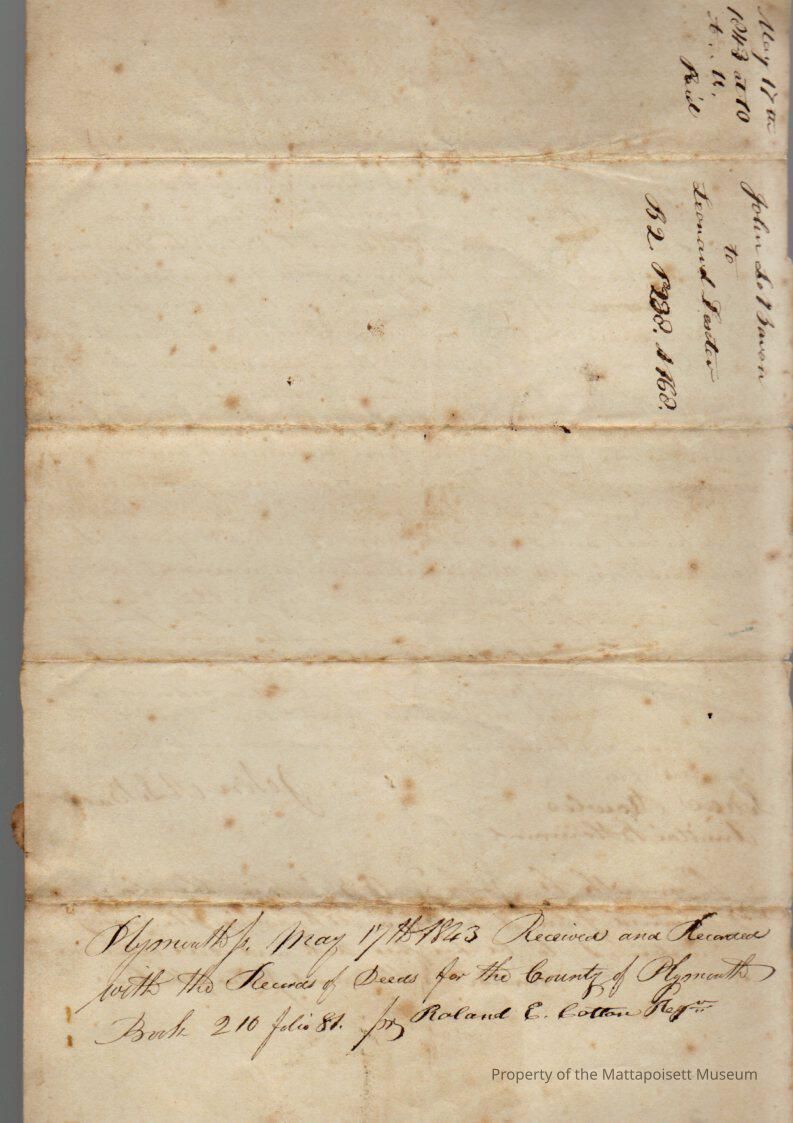 May 17th
1843 at 10
A. M.
Rcd
John Le Baron
to
Leonard
B 2. P 238.
Plymouth ss. May 17th 1843 Received and Recorded
with the Records of Deeds for the County of Plymouth
Book 210 folio 81. pr Roland E. Cotton Regr
Property of the Mattapoisett Museum